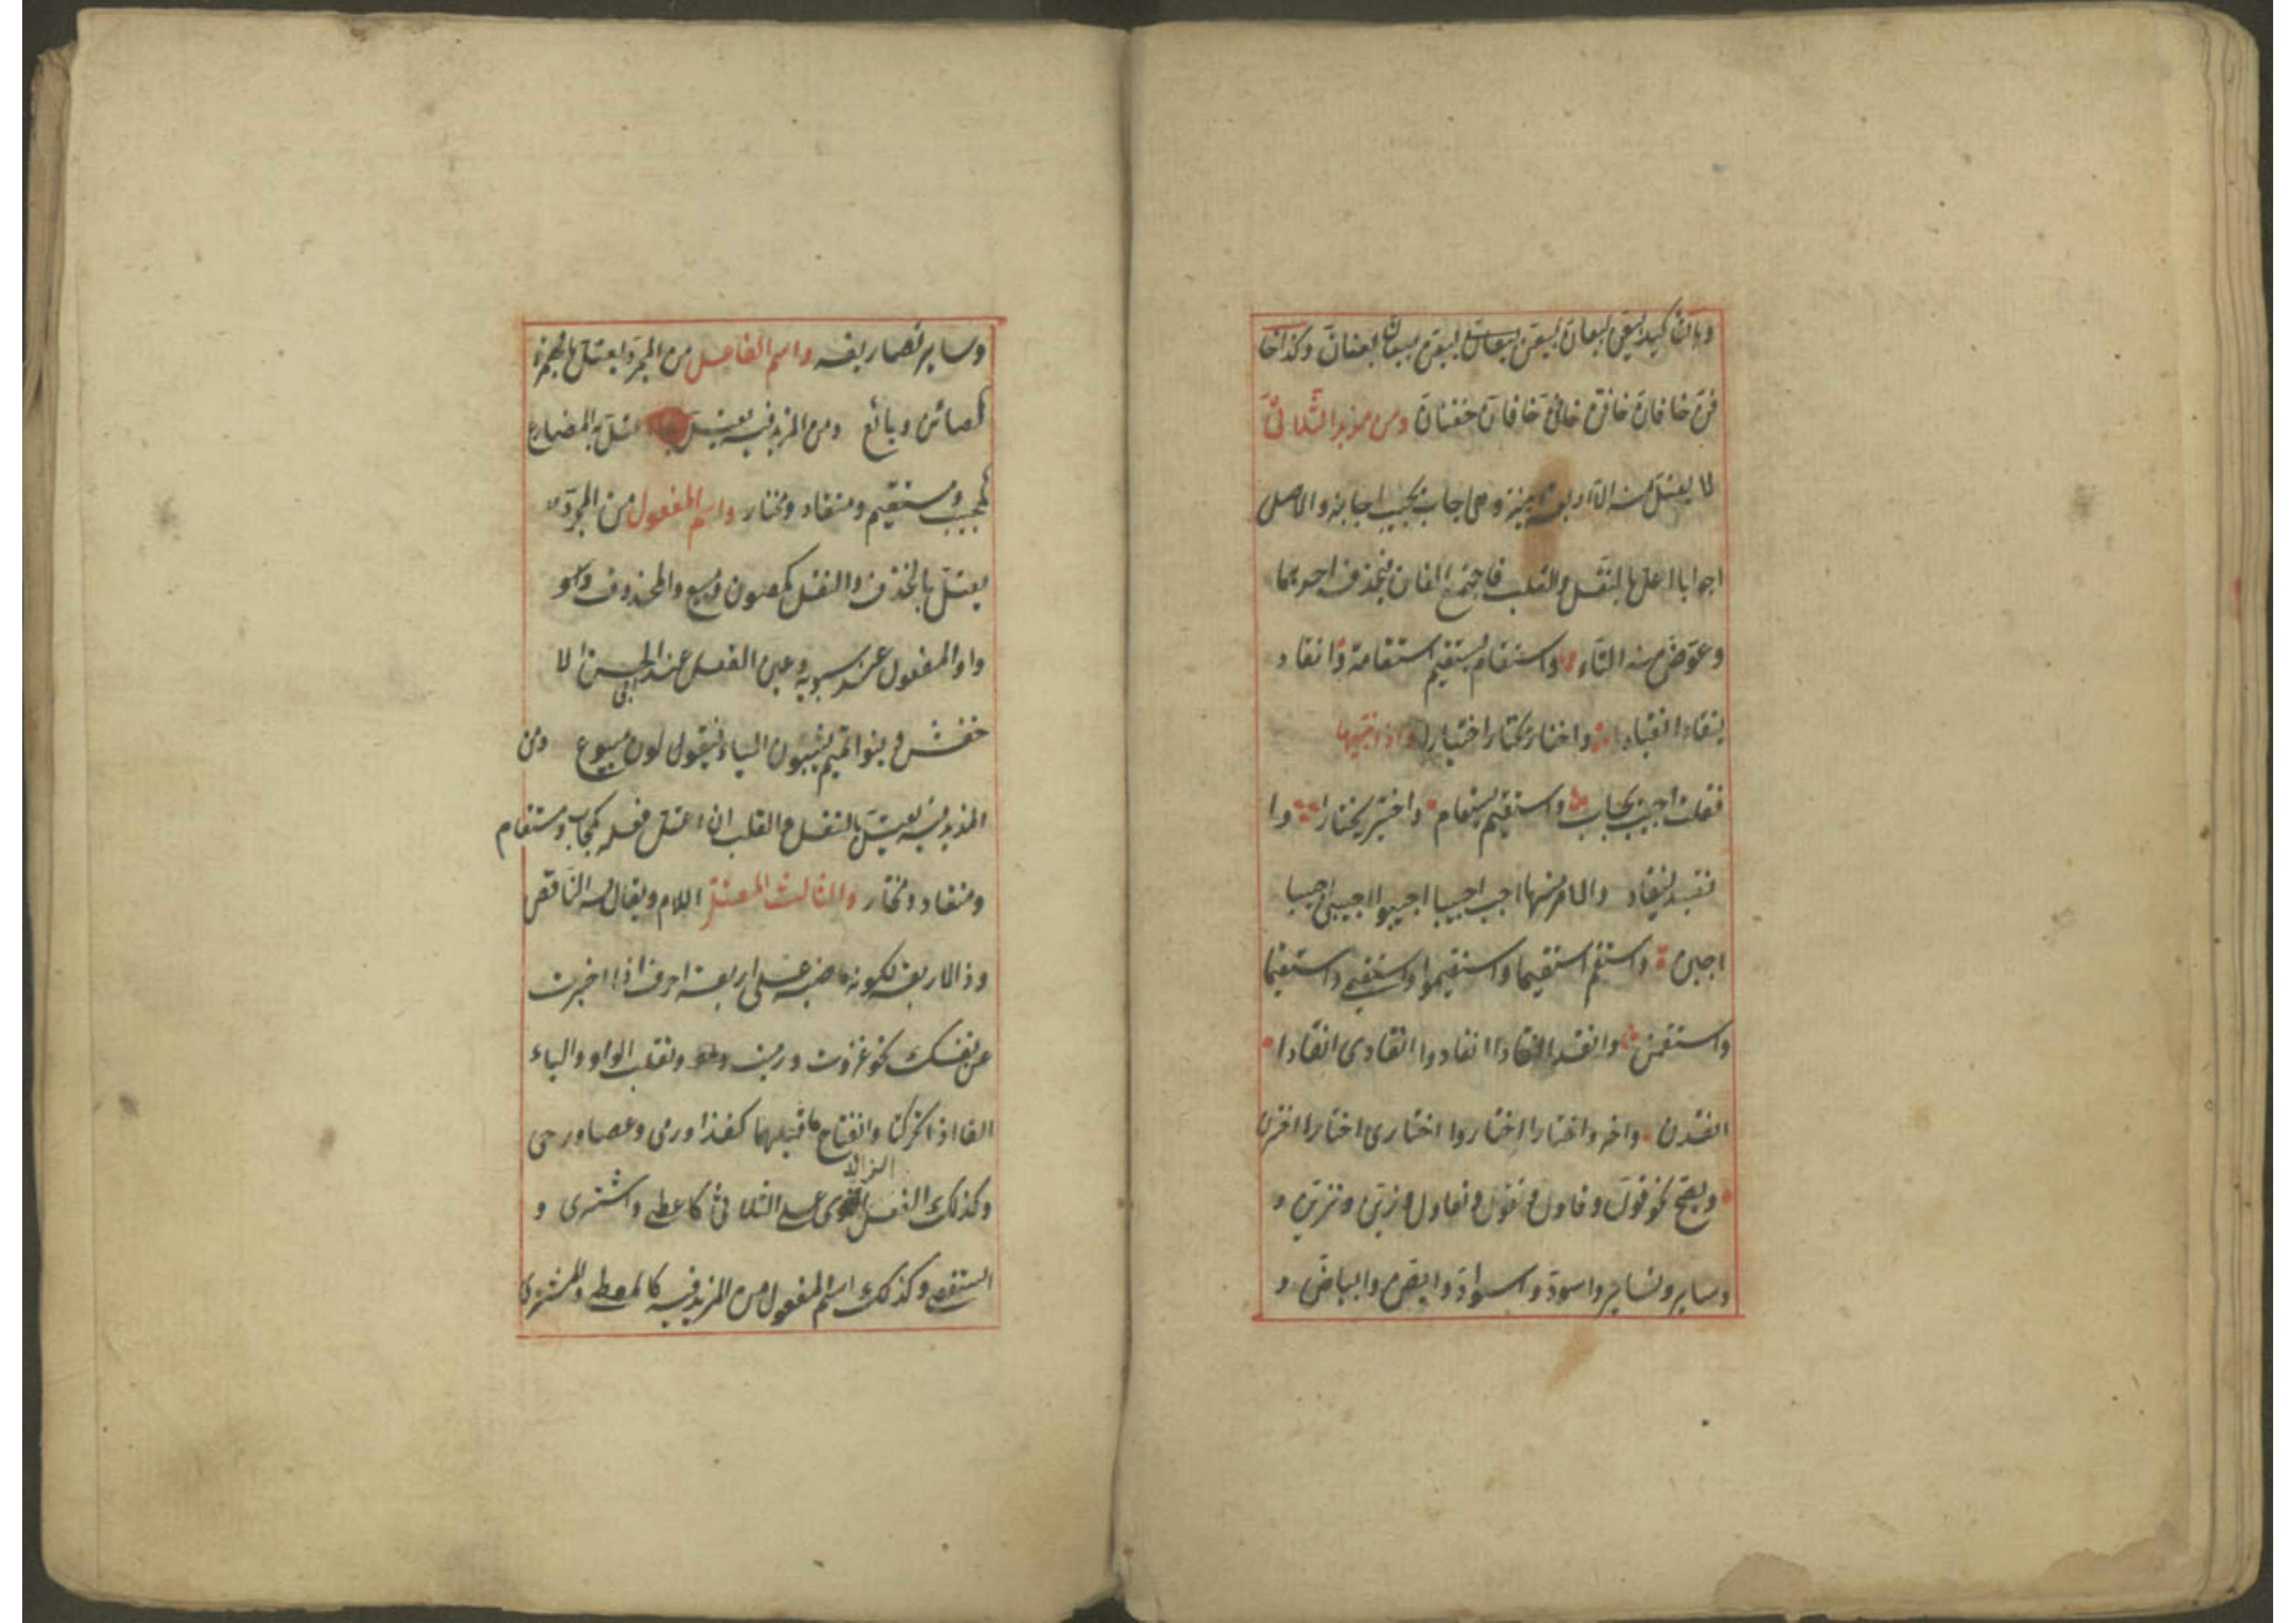 وبالتاكيد بيعن بيعان بيعن بيعان بيعن بيعان بيعنان وكذا خا
فن خافان خافن خافن خافان خفنان ومن مزيد الثلاثي
لا يعتل منه الا اربعة ابنية وهي اجاب يجيب اجابة والاصل
اجوابا اعل بالنقل والقلب فاجتمع الفان فيحذف احديهما
وعوض منه التاء واستقام يستقيم استقامة وانقاد
ينقاد انقيادا واختار يختار اختيارا واذا بنيتها
فقلت اجيب يجاب واستقيم يستقام واختير يختار وا
نقيد ينقاد والامر منها اجب اجيبا اجيبوا اجيبي اجيبا
اجبن واستقم استقيما واستقيموا واستقيمي واستقيما
واستقمن وانقد انقادا انقادوا انقادي انقادا
انقدن واختر واختارا اختاروا اختاري اختارا اخترن
ويصح نحو قول وقاول وتقول وتقاول وزين وتزين و
وساير وتساير واسود واسواد وابيض وابياض و
وساير تصاريفه واسم الفاعل من المجرد يعتل بالهمزة
كصائن وبائع ومن المزيد فيه يعتل بما اعتل به المضارع
كمجيب ومستقيم ومنقاد ومختار واسم المفعول من المجرد
يعتل بالحذف والنقل كمصون ومبيع والمحذوف وهو
واو المفعول عند سيبويه وعين الفعل عند ابي الحسن الا
خفش وبنوا تميم يثبتون الياء فيقولون مبيوع ومن
المزيد فيه يعتل بالنقل والقلب ان اعتل فعله كمجاب ومستقام
ومنقاد ومختار والثالث المعتل اللام ويقال له الناقص
وذا الاربعة لكونه ماضيه على اربعة احرف اذا اخبرت
عن نفسك نحو غزوت ورميت وتقلب الواو والياء
الفا اذا تحركتا وانفتاح ما قبلهما كغزا ورمى وعصا ورحى
وكذلك الفعل الزائد على الثلاثي كاعطى واشترى و
استقصى وكذلك اسم المفعول من المزيد فيه كالمعطى والمشترى